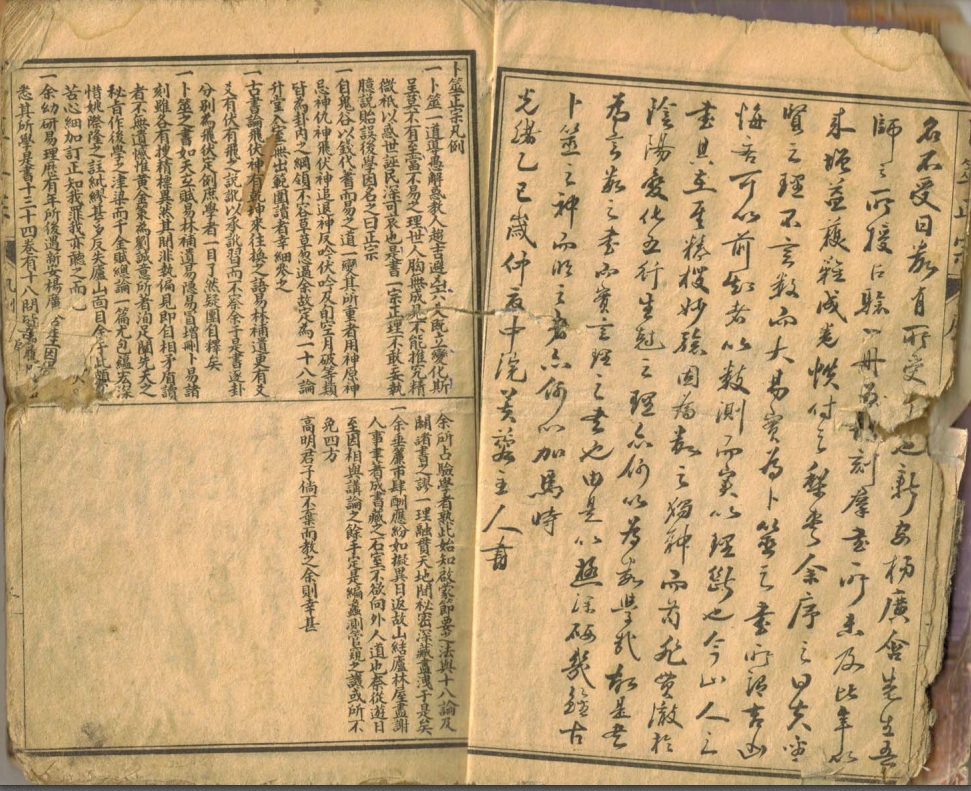 筮正宗
名不受曰 有所受 也新安楊廣含先生吾
師之所授已驗一册 刻羣書所未及比年以
來增益 成卷帙付之梨棗余序之曰夫聖
賢之理不言數而大易實為卜筮之書所謂吉凶
悔吝可以前知者以數測而實以理斷也今山人之
書具在至精極妙驗因為數之獨神而苟非 徹於
陰陽變化五行生剋之理亦何以為 學 故是書
為言數之書而實言理之書也由是以極深研幾雖古
卜筮之神而明之者亦何以加焉時
光緒乙巳歲仲夏中浣芙蓉主人書
卜筮正宗凡例
一卜筮一道導愚解惑教人趨吉避凶六爻既立變化斯
呈莫不有至當不易之理世人胸無成見不能推究精
微祇以惑世誣民深可哀也是書一宗正理不敢妄執
臆說貽誤後學因名之曰正宗
一自鬼谷以錢代蓍而易之道一變其所重者用神原神
忌神仇神飛伏神進退神反吟伏吟及旬空月破等類
皆為卦內之綱領不容草草忽過余故定為一十八論
升堂入室無出範圍讀者幸細參之
一古書論飛伏神有乾坤來往換之語易林補遺更有爻
爻有伏有飛之說訛以承訛習而不察余于是書逐卦
分別為飛伏定例庶學者一目了然疑團自釋矣
一卜筮之書如天玄賦易林補遺易隱易冒增刪卜易諸
刻雖各有搜精標異然其間非執偏見即自相矛盾讀
者不無遺憾惟黃金策為劉誠意所著洵足闡先天之
秘旨作後學之津梁而千金賦總論一篇尤包蘊宏深
惜姚際隆之註紕繆甚多反失廬山面目余于此
苦心細加訂正知我罪我亦聽之而已
一余幼研易理歷有年所後遇新安楊廣含先生因得
悉其所學是書十三十四卷有十八問
余所占驗學者熟此始知啟蒙節要之法與十八論及
闢諸書之謬一理融貫天地間秘密深藏盡洩于是矣
一余垂簾市肆酬應紛如擬異日返故山結廬林屋盡謝
人事畢著成書藏之石室不欲向外人道也奈從遊日
至因相與講論之餘手定是編蠡測管窺之譏或所不
免四方
高明君子倘不棄而教之余則幸甚